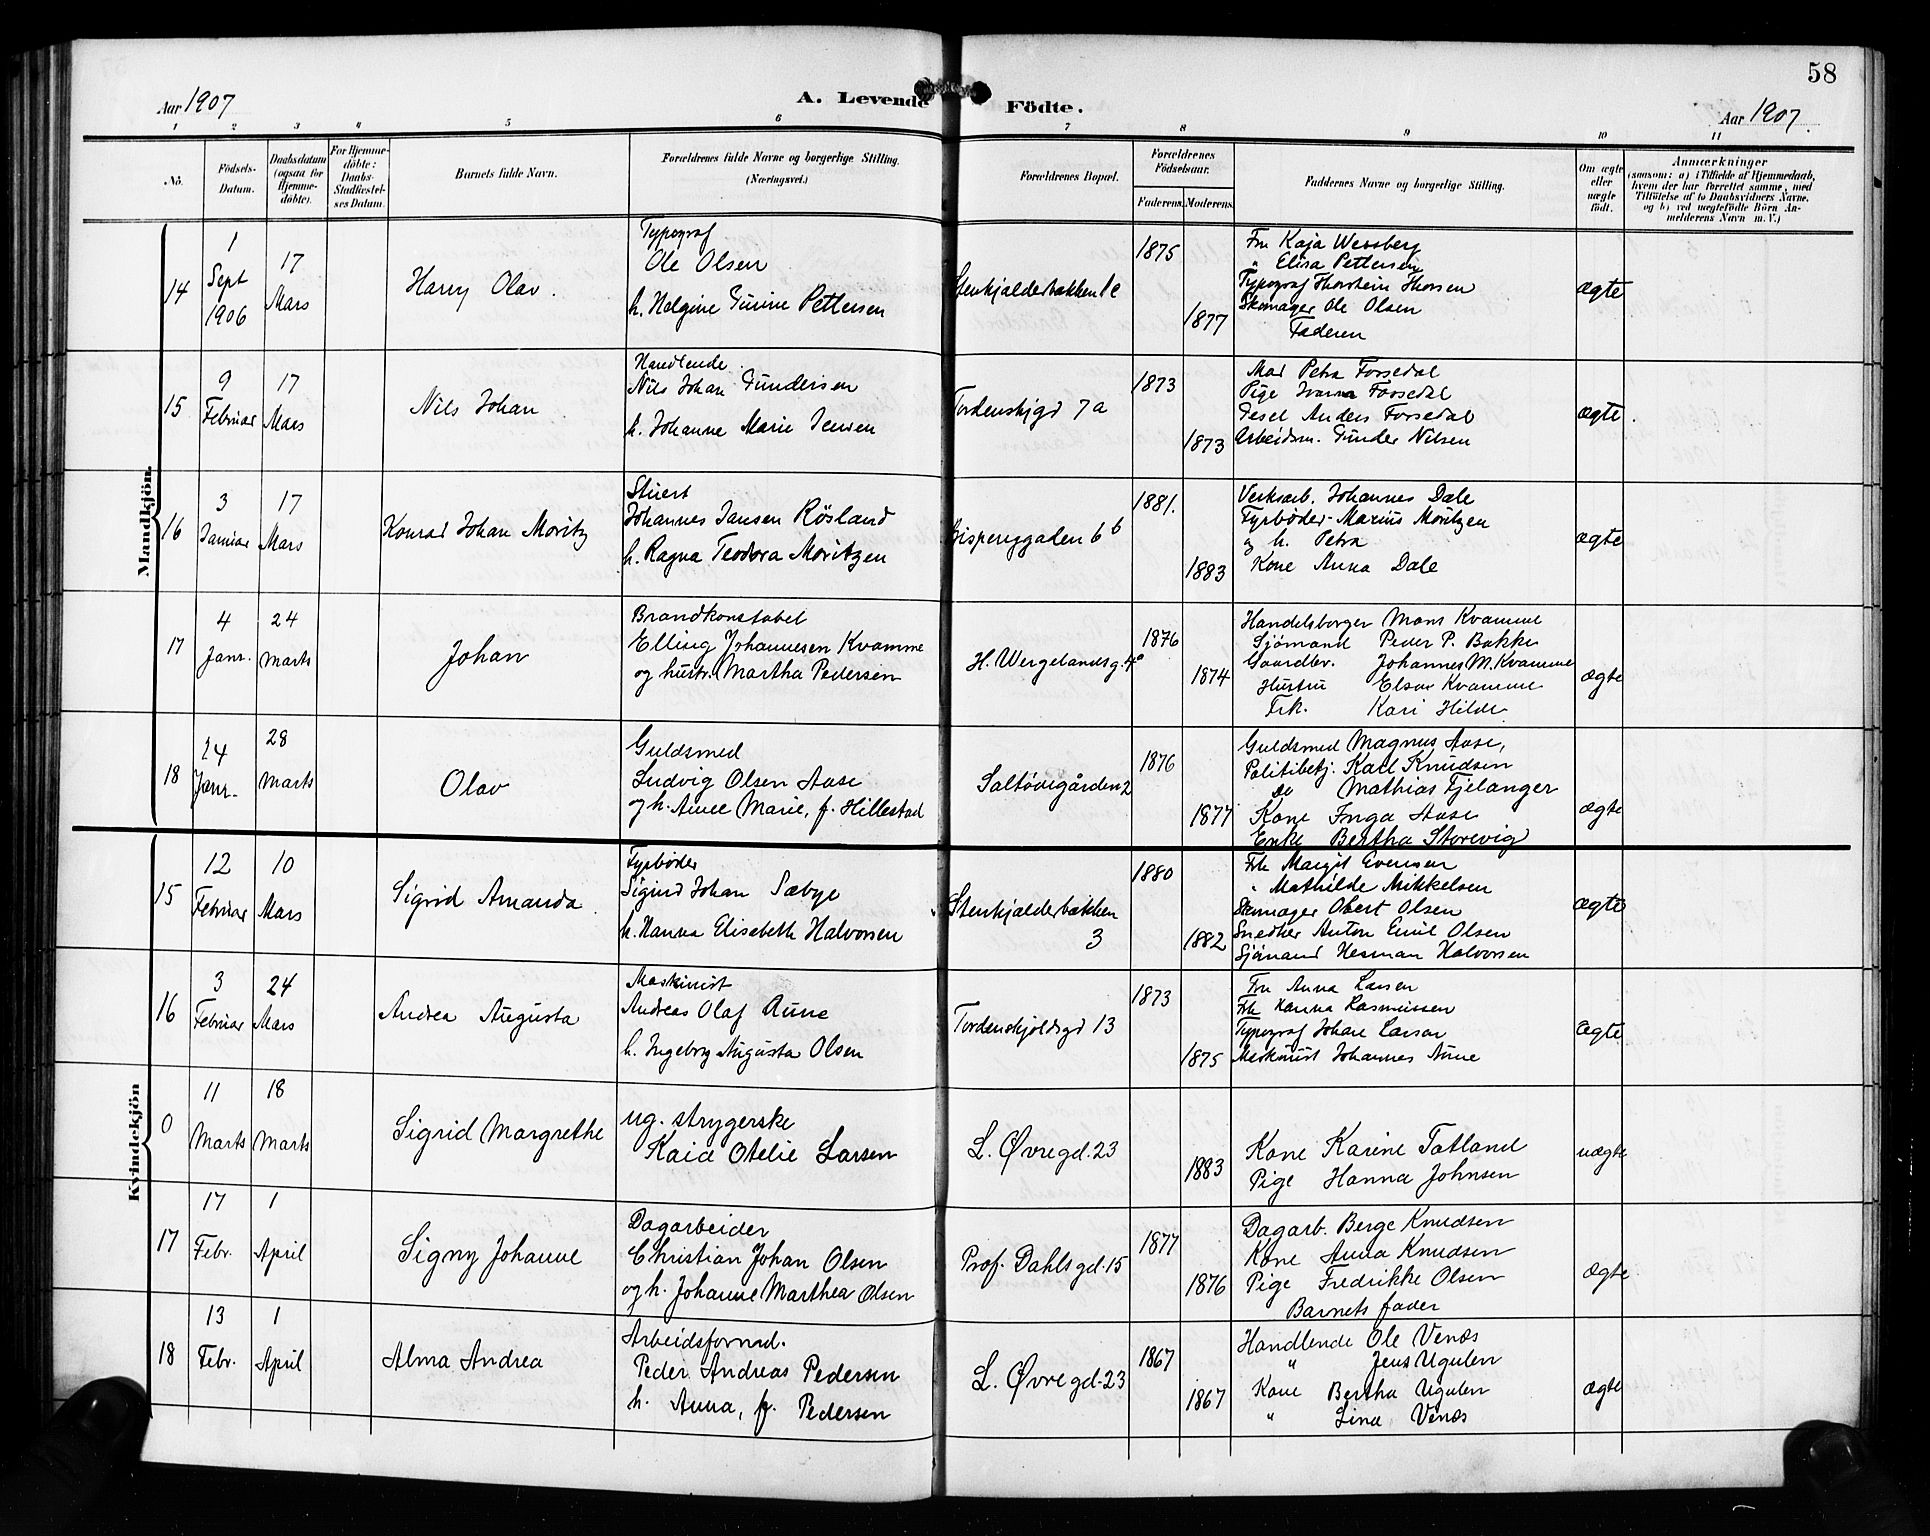 58
Aar 1907
A. Levende Födte.
Aar 1907.
1 2 3 4 5 6 7 8 9 10 11
No.
Födsels-Datum.
Daabsdatum (ogsaa for Hjemme-döbte).
For Hjemme-döbte: Daabs-Stadfæstel-ses Datum.
Barnets fulde Navn.
Forældrenes fulde Navne og borgerlige Stilling.
(Næringsvei.)
Forældrenes Bopæl.
Forældrenes Födselsaar.
Faderens. Moderens.
Faddernes Navne og borgerlige Stilling.
Om ægte eller uægte født.
Anmærkninger
(saasom: a) i Tilfælde af Hjemmedaab,
hvem der har forrettet samme, med
Tilföielse af to Daabsvidners Navne,
og b) ved uægtefödte Börn An-
melderens Navn m. V.)
Mandkjön.
14
1 Sept 1906
17 Mars
Harry Olav.
Typograf
Ole Olsen
h. Helgine Gurine Pettersen
Stenkjælderbakken 1c
1875
1877
Fru Kaja Wessberg
" Elisa Pettersen
Typograf Thorstein Thorsen
Skomager Ole Olsen
Faderen
ægte
15
9 Februar
17 Mars
Nils Johan
Handlende
Nils Johan Gundersen
h. Johanne Marie Jensen
Tordenskjgd 7a
1873
1873
Mad Petra Forsedal
Pige Ivanna Forsedal
Gesel Anders Forsedal
Arbeidsm. Gunder Nilsen
ægte
16
3 Januar
17 Mars
Konrad Johan Moritz
Stuert
Johannes Jansen Røsland
h. Ragna Teodora Moritzen
Bispenggaden 6b
1881.
1883
Verksarb. Johannes Dale
Fyrbøder Marius Moritzen
og h. Petra
Kone Anna Dale
ægte
17
4 Janr.
24 Marts
Johan
Brandkonstabel
Elling Johannesen Kvamme
og hustr. Martha Pedersen
H. Wergelandsg. 4
1876
1874
Handelsborger Mons Kvamme
Sjømand Peder P. Bakke
Gaardbr. Johannes M. Kvamme
Hustru Elsa Kvamme
Frk. Kari Hilde
ægte
18
24 Janr.
28 Marts
Olav
Guldsmed
Ludvig Olsen Aase
og h. Anne Marie, f. Hillestad
Saltøiegården 2
1876
1877
Guldsmed Magnus Aase,
Politibetj. Karl Knudsen
Do Mathias Fjelanger
Kone Inga Aase
Enke Bertha Storevig
ægte
Kvindekjön
15
12 Februar
10 Mars
Sigrid Amanda
Fyrbøder
Sigurd Johan Sæbye
h. Hanna Elisabeth Halvorsen
Stenkjælderbakken 3
1880
1882
Frk Margit Evensen
" Mathilde Mikkelsen
Skomager Obert Olsen
Snedker Anton Emil Olsen
Sjømand Herman Halvorsen
ægte
16
3 Februar
24 Mars
Andrea Augusta
Maskinist
Andreas Olaf Aune
h. Ingeborg Augusta Olsen
Tordenskjoldsgd 13
1873
1875
Fru Anna Larsen
Frk Hanna Rasmussen
Typograf Johan Larsen
Maskinist Johannes Aune
ægte
0
11 Marts
18 Marts
Sigrid Margrethe
ug. strygerske
Kaia Otelie Larsen
L. Øvregd. 23
1883
Kone Karine Tatland
Pige Hanna Johnsen
uægte
17
17 Febr.
1 April
Signy Johanne
Dagarbeider
Christian Johan Olsen
og h. Johanne Marthea Olsen
Prof. Dahls gd. 15
1877
1876
Dagarb. Berge Knudsen
Kone Anna Knudsen
Pige Fredrikke Olsen
Barnets fader
Ægte
18
13 Febr.
1 April
Alma Andrea
Arbeidsformd.
Peder Andreas Pedersen
h. Anna, f. Pedersen
L. Øvregd. 23
1867
1867
Handlende Ole Venæs
" Jens Ugulen
Kone Bertha Ugulen
" Lina Venæs
ægte